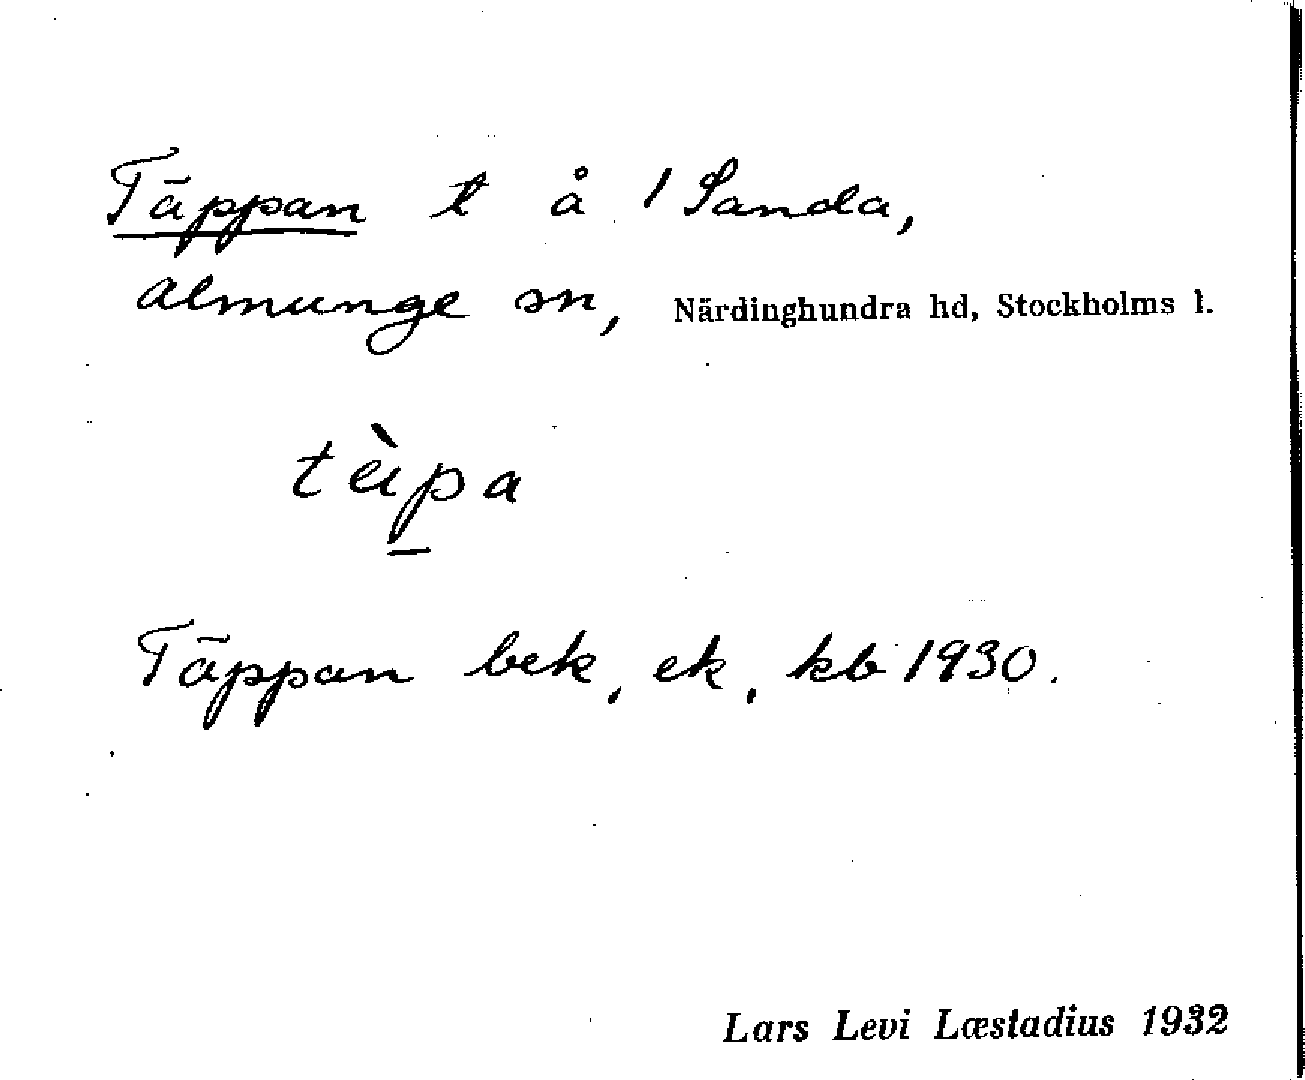 Täppan t å 1 Sanda,
Almunge sn, Närdinghundra hd, Stockholms l.
tä̀p̲a
Täppan bek, ek, kb 1930.
Lars Levi Læstadius 1932